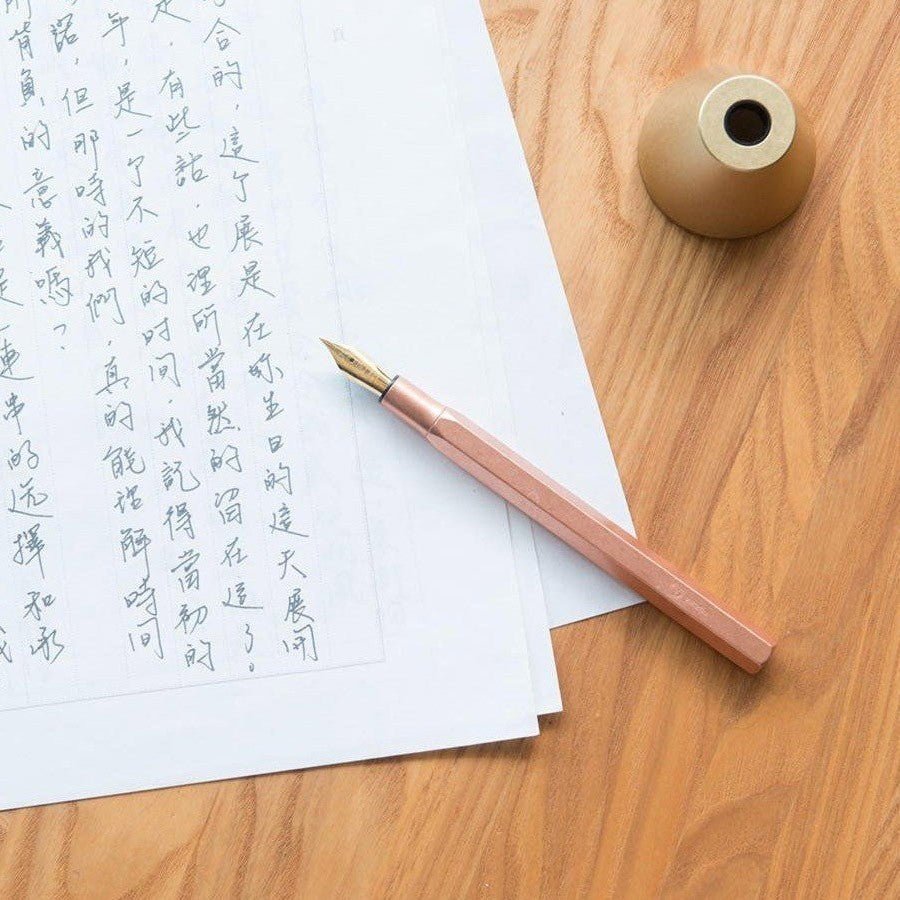 合的，這个展是在妳生日的這天展開
是，有些話，也理所當然的留在這了。
年，是一个不短的时间，我記得當初的
諾，但那時的我們，真的能理解時间
所背負的意義嗎？
是一連串的选擇和承